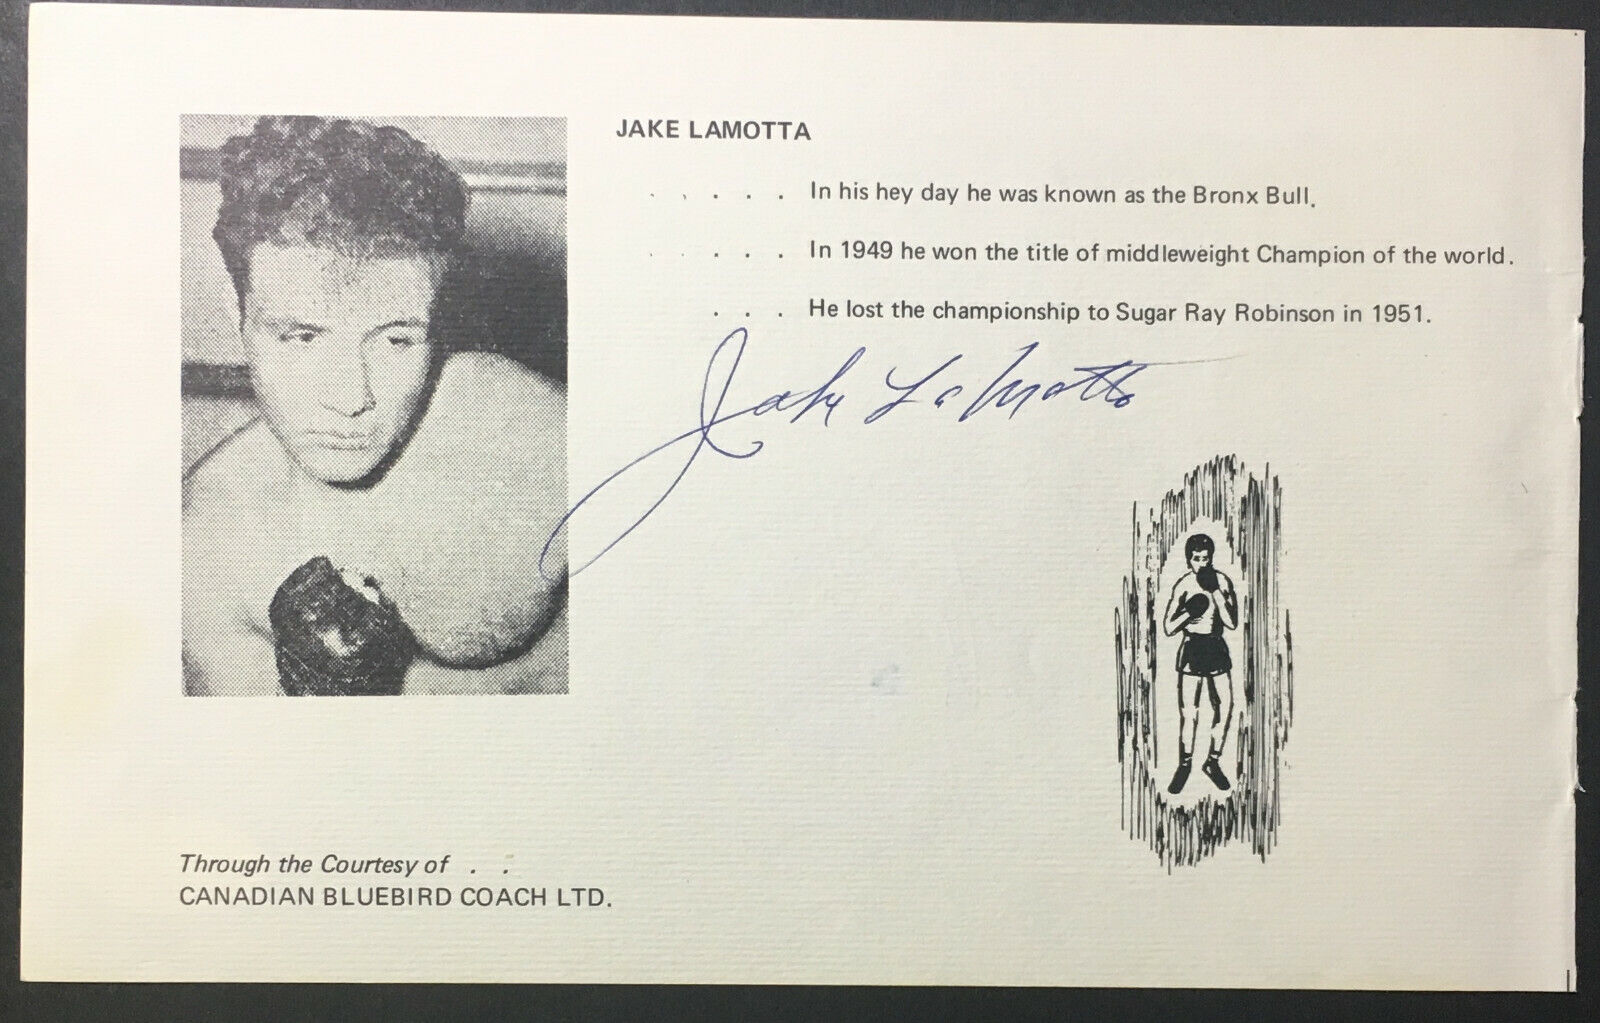 JAKE LAMOTTA
. . . . . In his hey day he was known as the Bronx Bull.
. . . . . In 1949 he won the title of middleweight Champion of the world.
. . . He lost the championship to Sugar Ray Robinson in 1951.
Jake LaMotta
Through the Courtesy of . .
CANADIAN BLUEBIRD COACH LTD.